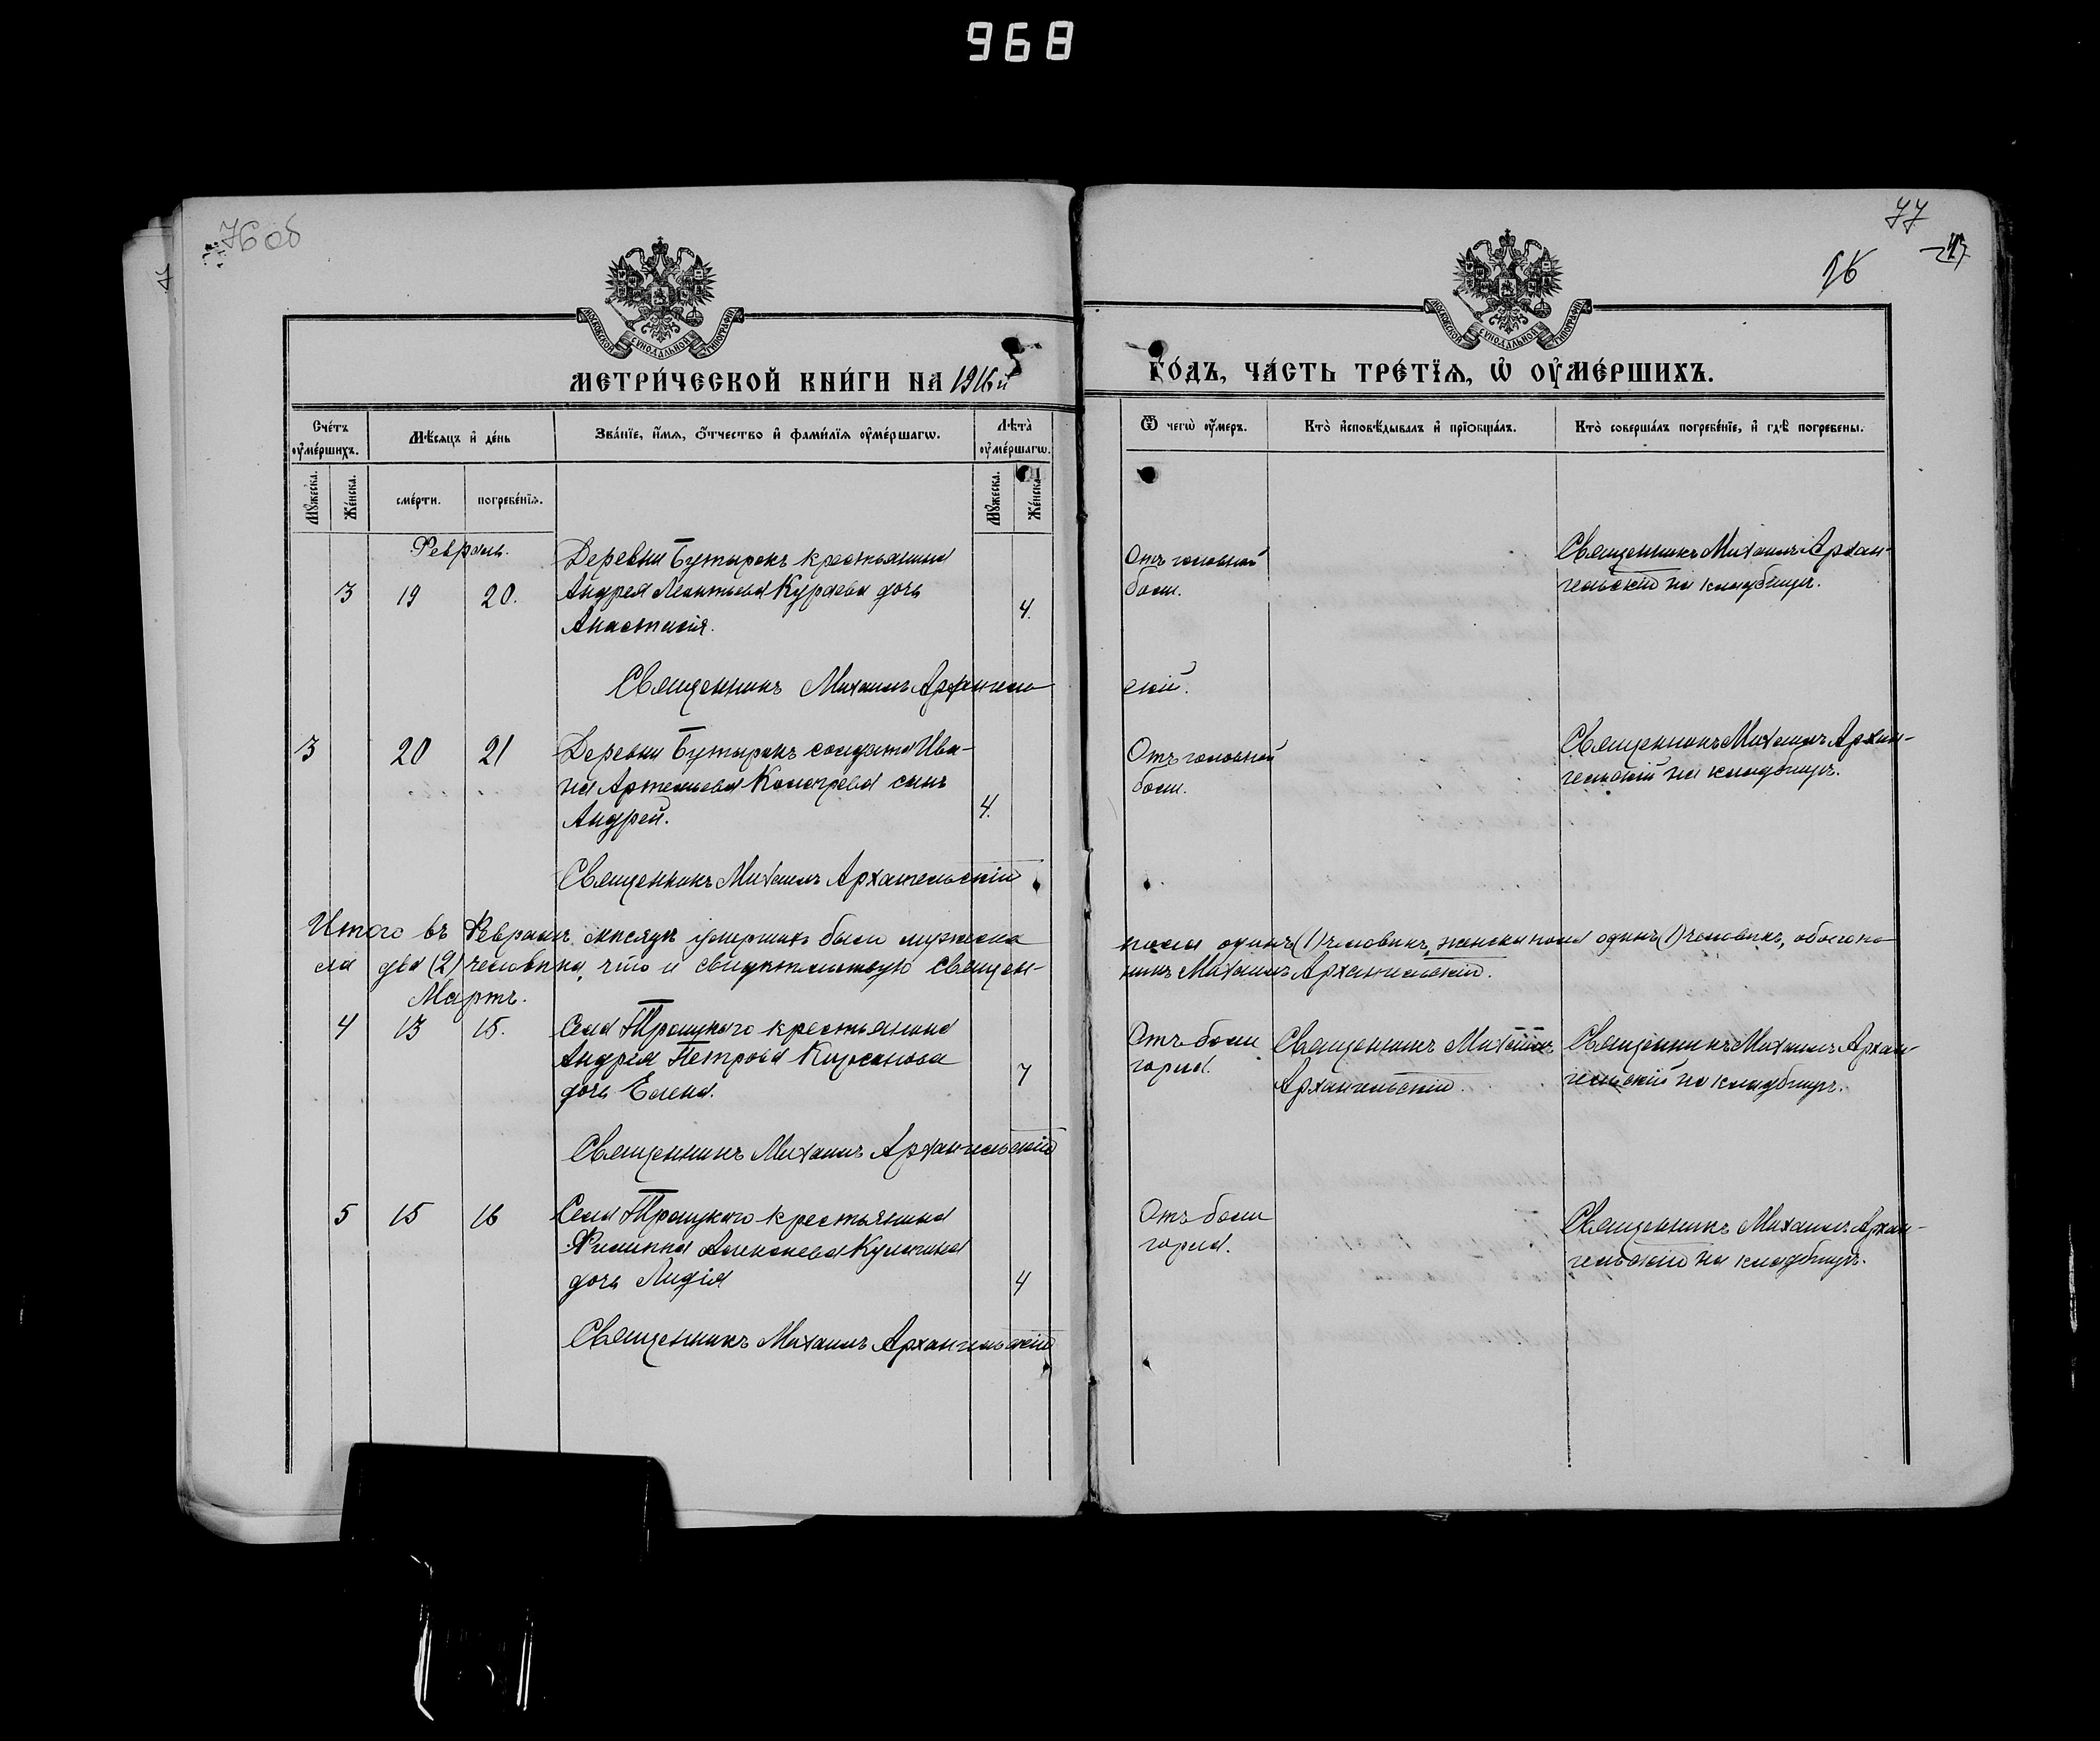 968
76 об
77
16
27
МОСКОВСКОЙ СѴНОДАЛЬНОЙ ТИПОГРАФІИ
МОСКОВСКОЙ СѴНОДАЛЬНОЙ ТИПОГРАФІИ
МЕТРИ́ЧЕСКОЙ КНИ́ГИ НА 1916й
ГО́ДЪ, ЧА́СТЬ ТРЕ́ТЇѦ, Ѡ҆ ОУ҆МЕ́РШИХЪ.
Сче́тъ оу҆ме́ршихъ.
Мѣ́сяцъ и҆ де́нь
Зва́нїе, и҆́мѧ, ѻ҆́тчество и҆ фами́лїѧ оу҆ме́ршагѡ.
Лѣ́та̀ оу҆ме́ршагѡ.
Ѿ чегѡ̀ оу҆́меръ.
Кто̀ и҆сповѣ́дывалъ и҆ прїѻбща́лъ.
Кто̀ соверша́лъ погребе́нїе, и҆ гдѣ̀ погребены.
Мꙋ́жеска.
Же́нска.
сме́рти.
погребе́нїѧ.
Мꙋ́жеска.
Же́нска.
Февраль.
3 19 20.
Деревни Бутырокъ крестьянина
Андрея Леонтьева Кураева дочь
Анастасія.
4.
Отъ головной
боли.
Священникъ Михаилъ Архан-
гельскій на кладбищѣ.
Священникъ Михаилъ Архангель
скій.
3 20 21
Деревни Бутырокъ солдата Ива-
на Артемьева сынъ
Андрей.
4.
Отъ головной
боли.
Священникъ Михаилъ Архан-
гельскій на кладбищѣ.
Священникъ Михаилъ Архангельскій
Итого въ Февралѣ мѣсяцѣ умершихъ было мужеска
пола одинъ (1) человѣкъ, женска пола одинъ (1) человѣкъ, обоего по
ла два (2) человѣка, что и свидѣтельствую Священ-
никъ Михаилъ Архангельскій.
Мартъ.
4 13 15.
Села Троицкаго крестьянина
Андрея Петрова Кирсанова
дочь Елена.
7
Отъ боли
горла.
Священникъ Михаилъ
Архангельскій.
Священникъ Михаилъ Архан
гельскій на кладбищѣ.
Священникъ Михаилъ Архангельскій
5 15 16
Села Троицкаго крестьянина
Филиппа Алексѣева Кулагина
дочь Лидія
4
Отъ боли
горла.
Священникъ Михаилъ Архан-
гельскій на кладбищѣ.
Священникъ Михаилъ Архангельскій